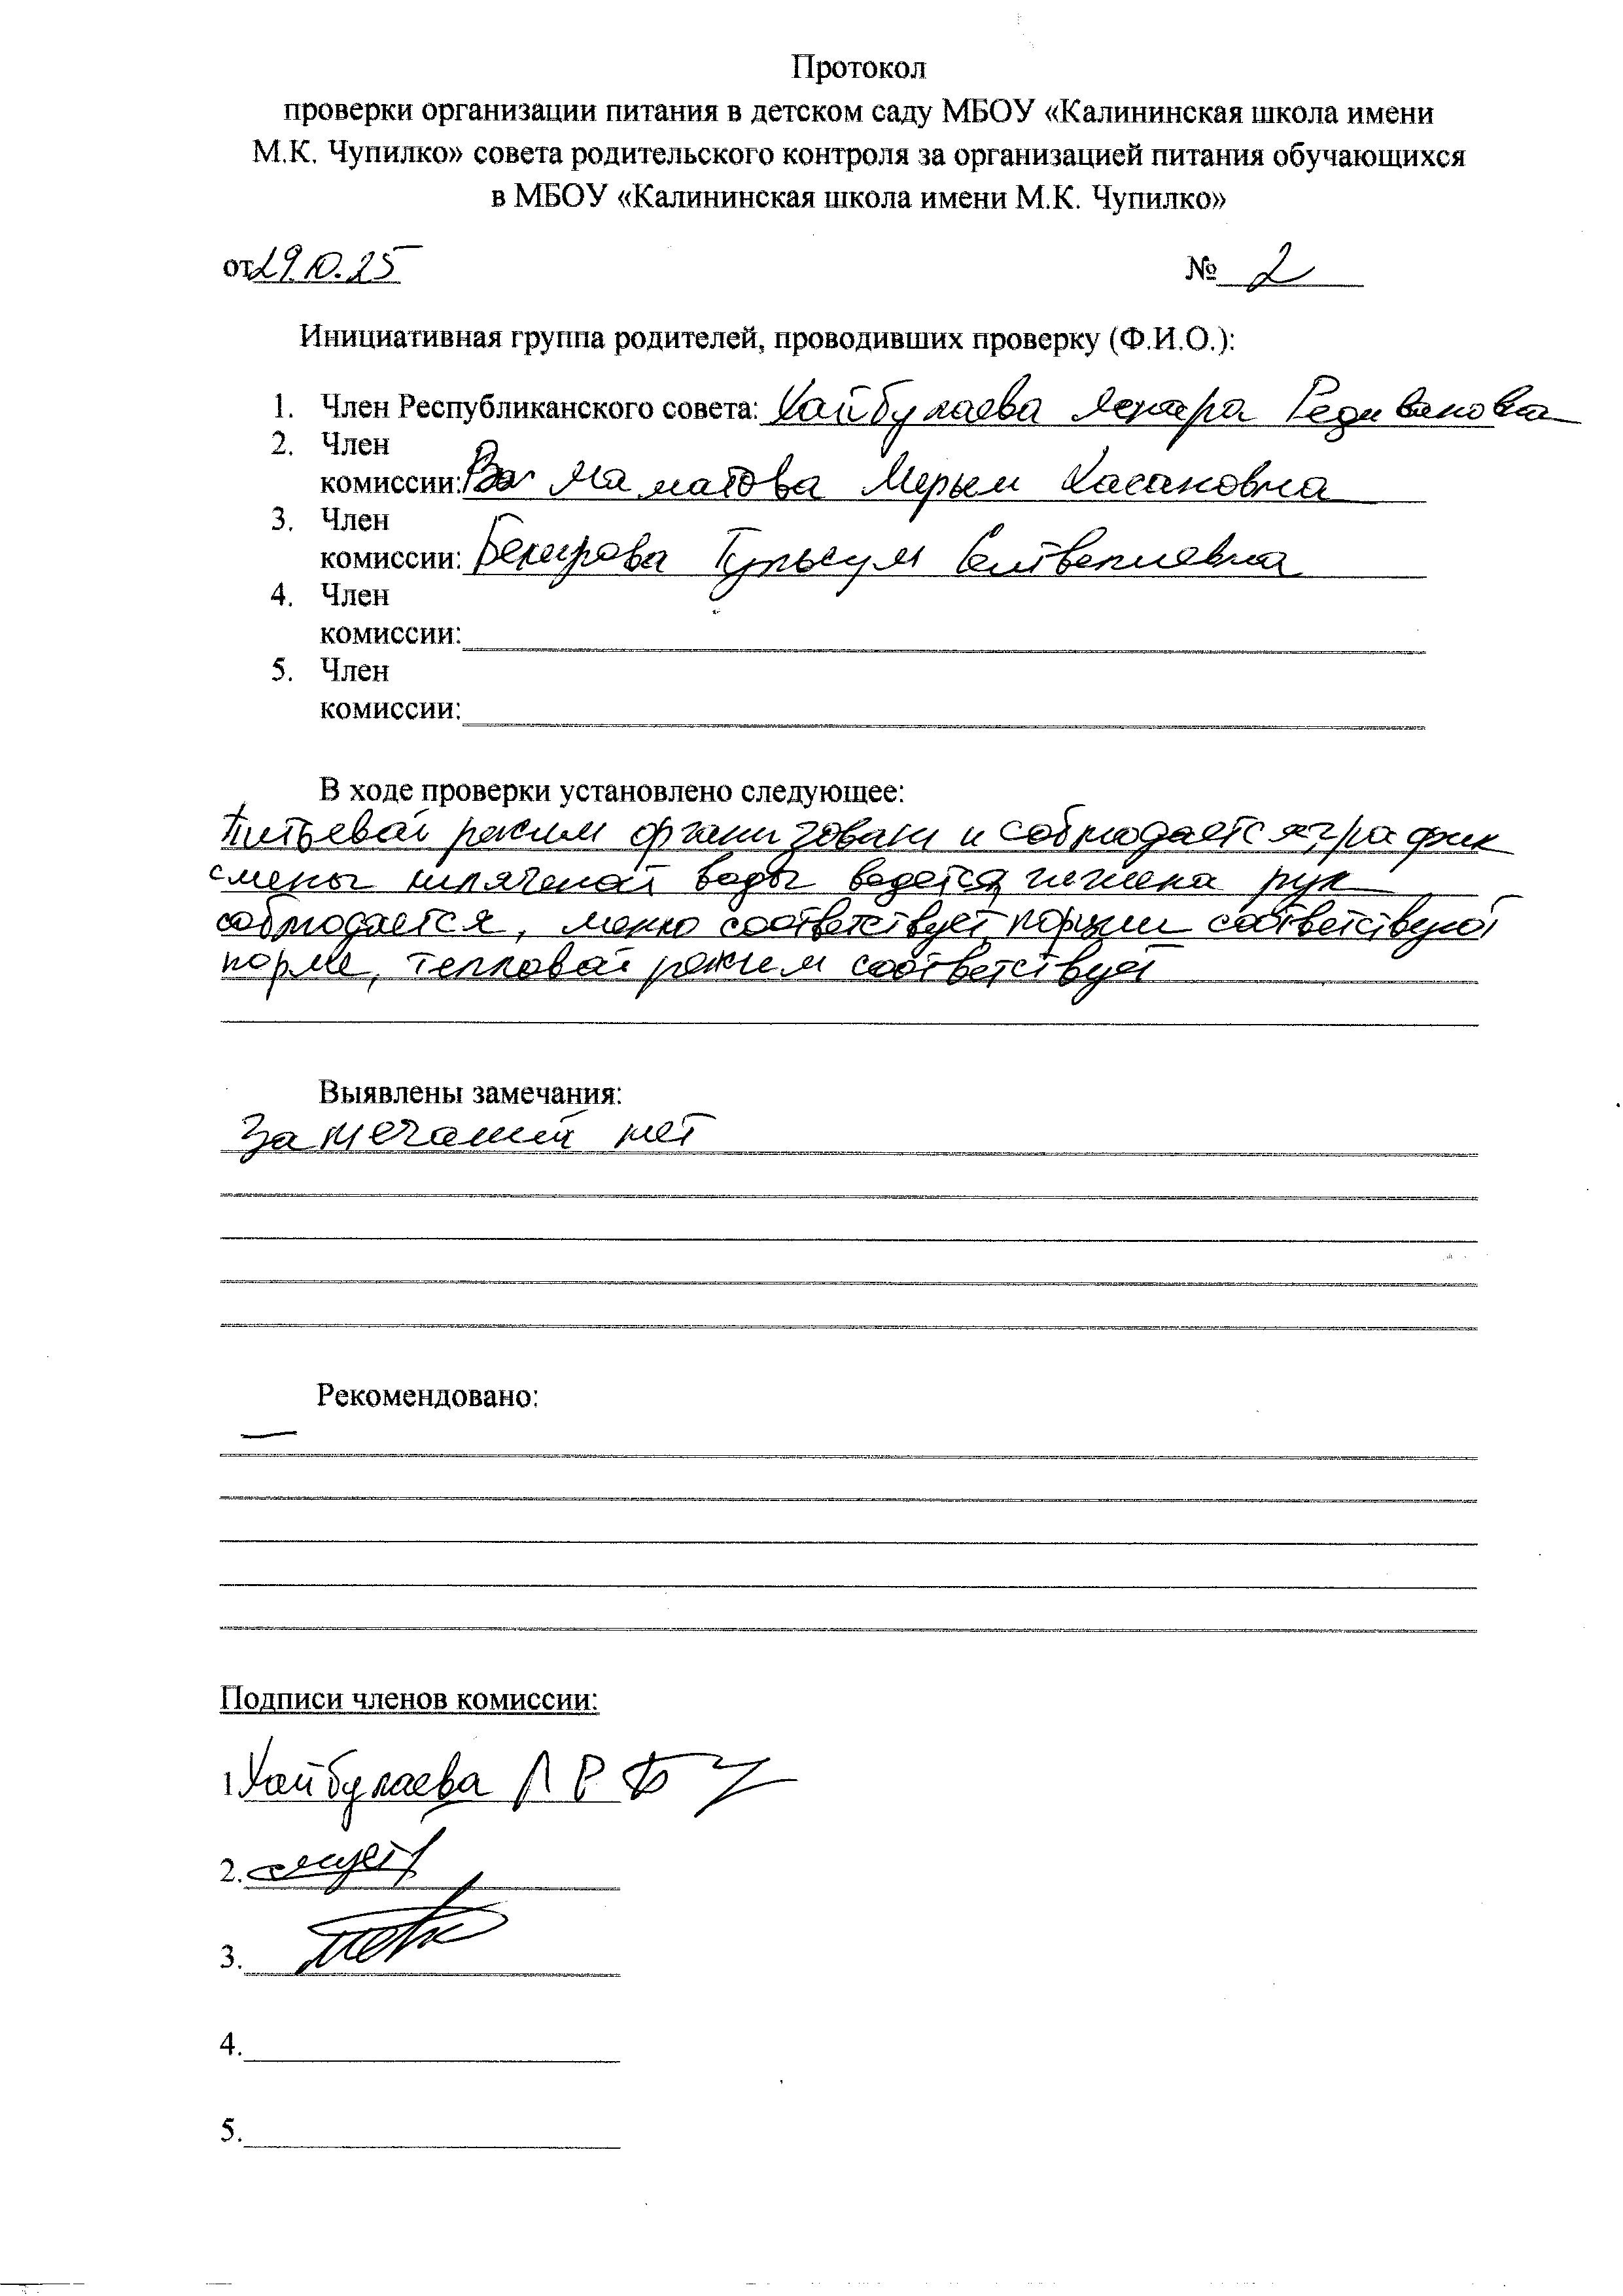 Протокол
проверки организации питания в детском саду МБОУ «Калининская школа имени
М.К. Чупилко» совета родительского контроля за организацией питания обучающихся
в МБОУ «Калининская школа имени М.К. Чупилко»
от 29.10.25 № 2
Инициативная группа родителей, проводивших проверку (Ф.И.О.):
1. Член Республиканского совета: Хайбулаева Ленара Редвановна
2. Член
комиссии: Мерьем Хасановна
3. Член
комиссии: Бекирова Гульсум
4. Член
комиссии:
5. Член
комиссии:
В ходе проверки установлено следующее:
Питьевой режим организован и соблюдается, график
смены кипяченой воды ведется, гигиена рук
соблюдается, меню соответствует, порции соответствуют
норме, тепловой режим соответствует
Выявлены замечания:
Замечаний нет
Рекомендовано:
—
Подписи членов комиссии:
1. Хайбулаева Л Р
2.
3.
4.
5.